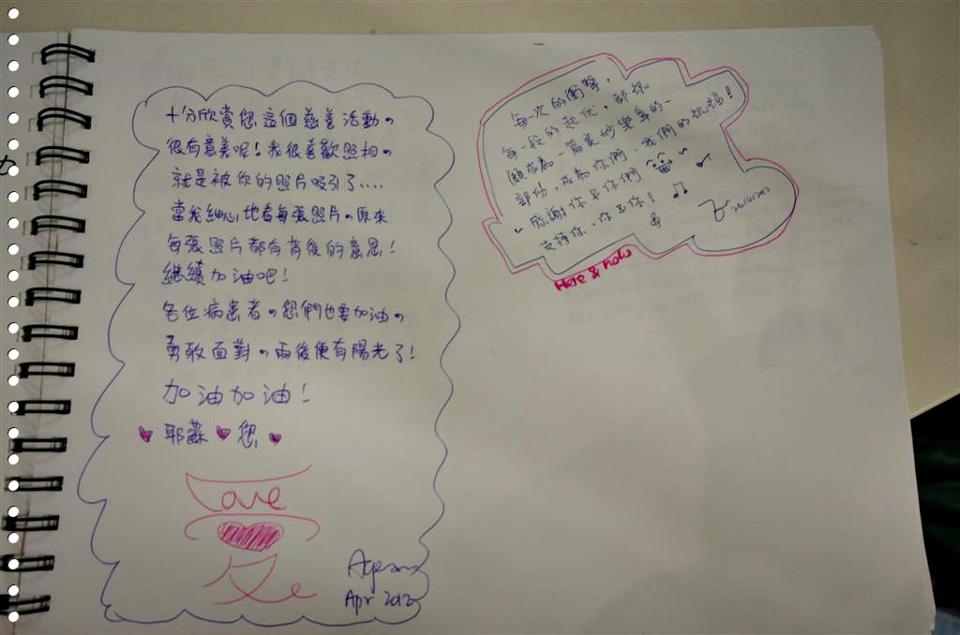 十分欣賞您這個慈善活動。
很有意義呢！我很喜歡照相。
就是被你的照片吸引了....
當我細心地看每張照片。原來
每張照片都有背後的意思！
繼續加油吧！
各位病患者。您們也要加油。
勇敢面對。雨後便有陽光了！
加油加油！
耶蘇 您
Love
Apr 2012
每一次的衝擊，
每一段的起伏，都祝
願成為一篇美妙樂章的一
部份，成為你們、我們的祝福！
感謝你&你們
支持你、你&你！
Here & Now